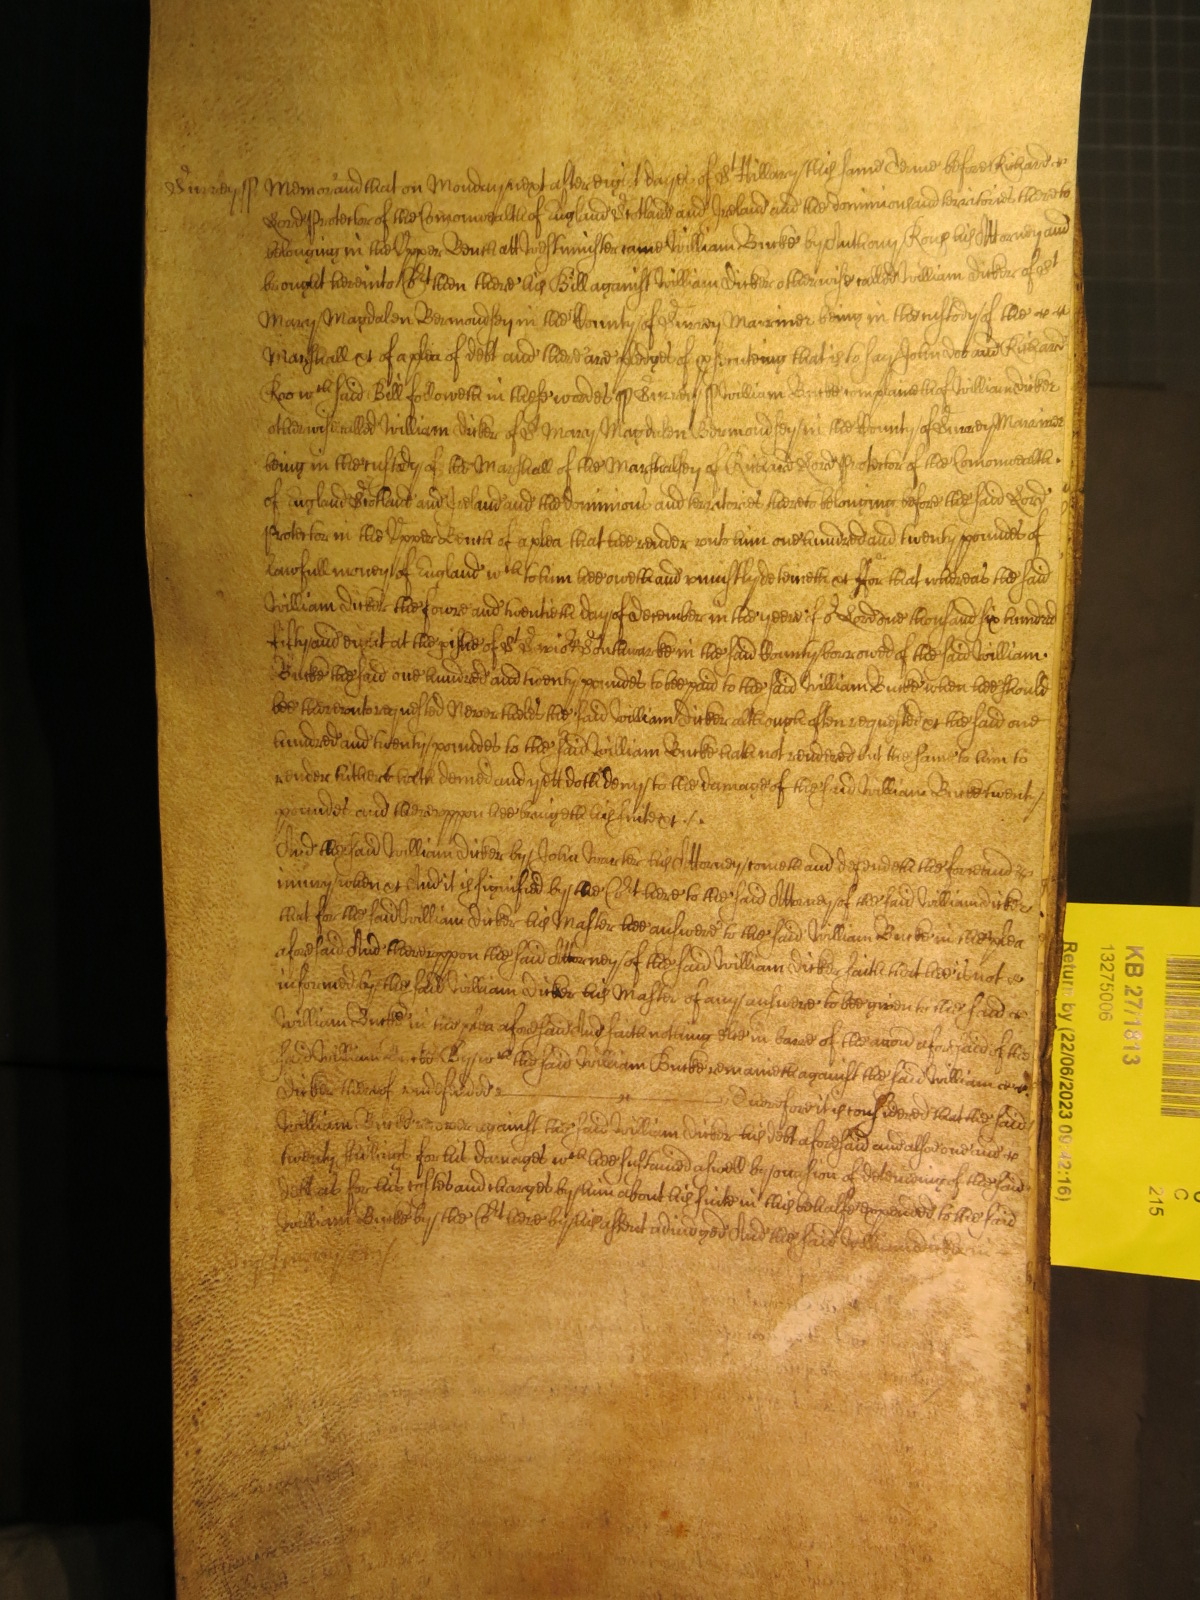 Surrey ss Memorand that on Monday next after eight dayes of St Hillary this same Terme before Richard
Lord Protector of the Comonwealth of England Scotland and Ireland and the dominions and territories thereto
belonging in the Upper Bench att Westminster came William Burke by Anthony Rous his Attorney and
brought here into Cort then there his Bill against William Dicker otherwise called William Dicker of St
Mary Magdalen Bermondsey in the County of Surrey Marriner being in the custody of the
Marshall &t of a plea of debt and there are pledges of prosecuteing that is to say John Doo and Richard
Roo wch said Bill followeth in these wordes ss Surrey ss William Burke complaineth of William Dicker
otherwise called William Dicker of St Mary Magdalen Bermondsey in the County of Surrey Marriner
being in the custody of the Marshall of the Marshalsey of Richard Lord Protector of the Comonwealth
of England Scotland and Ireland and the dominions and territories thereto belonging before the said Lord
Protector in the Upper Bench of a plea that hee render unto him one hundred and twenty poundes of
lawfull money of England wch to him hee oweth and uniustly deteineth &t For that whereas the said
William Dicker the fowre and twentieth day of December in the yeere of or Lord one thousand six hundred
fifty and eight at the pishe of St Saviors Southwarke in the said County borrowed of the said William
Burke the said one hundred and twenty poundes to bee paid to the said William Burke when hee should
bee thereunto requested Neverthelesse the said William Dicker although often requested &t the said one
hundred and twenty poundes to the said William Burke hath not rendered but the same to him to
render hitherto hath denied and yett doth deny to the damage of the said William Burke twenty
poundes and thereuppon hee bringeth his suite &t
And the said William Dicker by John Warker his Attorney cometh and defendeth the force and
iniury when &t And it is signified by the Cort here to the said Attorney of the said William Dicker
that for the said William Dicker his Master hee answere to the said William Burke in the plea
aforesaid And thereuppon the said Attorney of the said William Dicker saith that hee is not
informed by the said William Dicker his Master of any answere to bee given to the said
William Burke in the plea aforesaid And saith nothing else in barre of the accon aforesaid of the
said William Burke By wch the said William Burke remaineth against the said William
Dicker thereof undefended Therefore it is considered that the said
William Burke recover against the said William Dicker his debt aforesaid and alsoe one and
twenty shillings for his damages wch hee sustained aswell by occasion of deteineing of the said
debt as for his costes and charges by him about his suite in this behalfe expended to the said
William Burke by the Cort here by his assent adiudged And the said William Dicker in
mercy &t
KB 27/1813
13275006
Return by (22/06/2023 09:42:16)
C
215